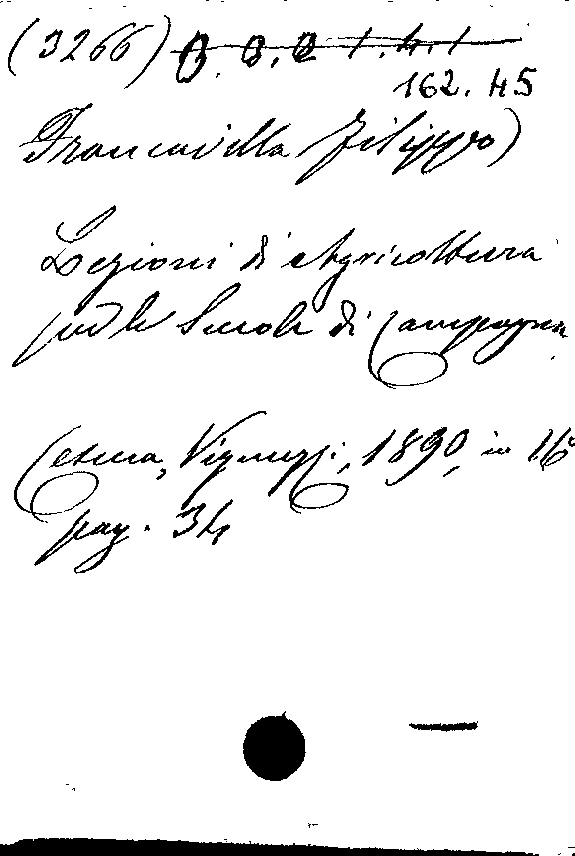 (3266) B. B. B 1.4.1
162.45
Francavilla Filippo)
Lezioni di Agricoltura
per le Scuole di Campagna
Cesena, Vignuzzi, 1890, in 16°
pag. 34